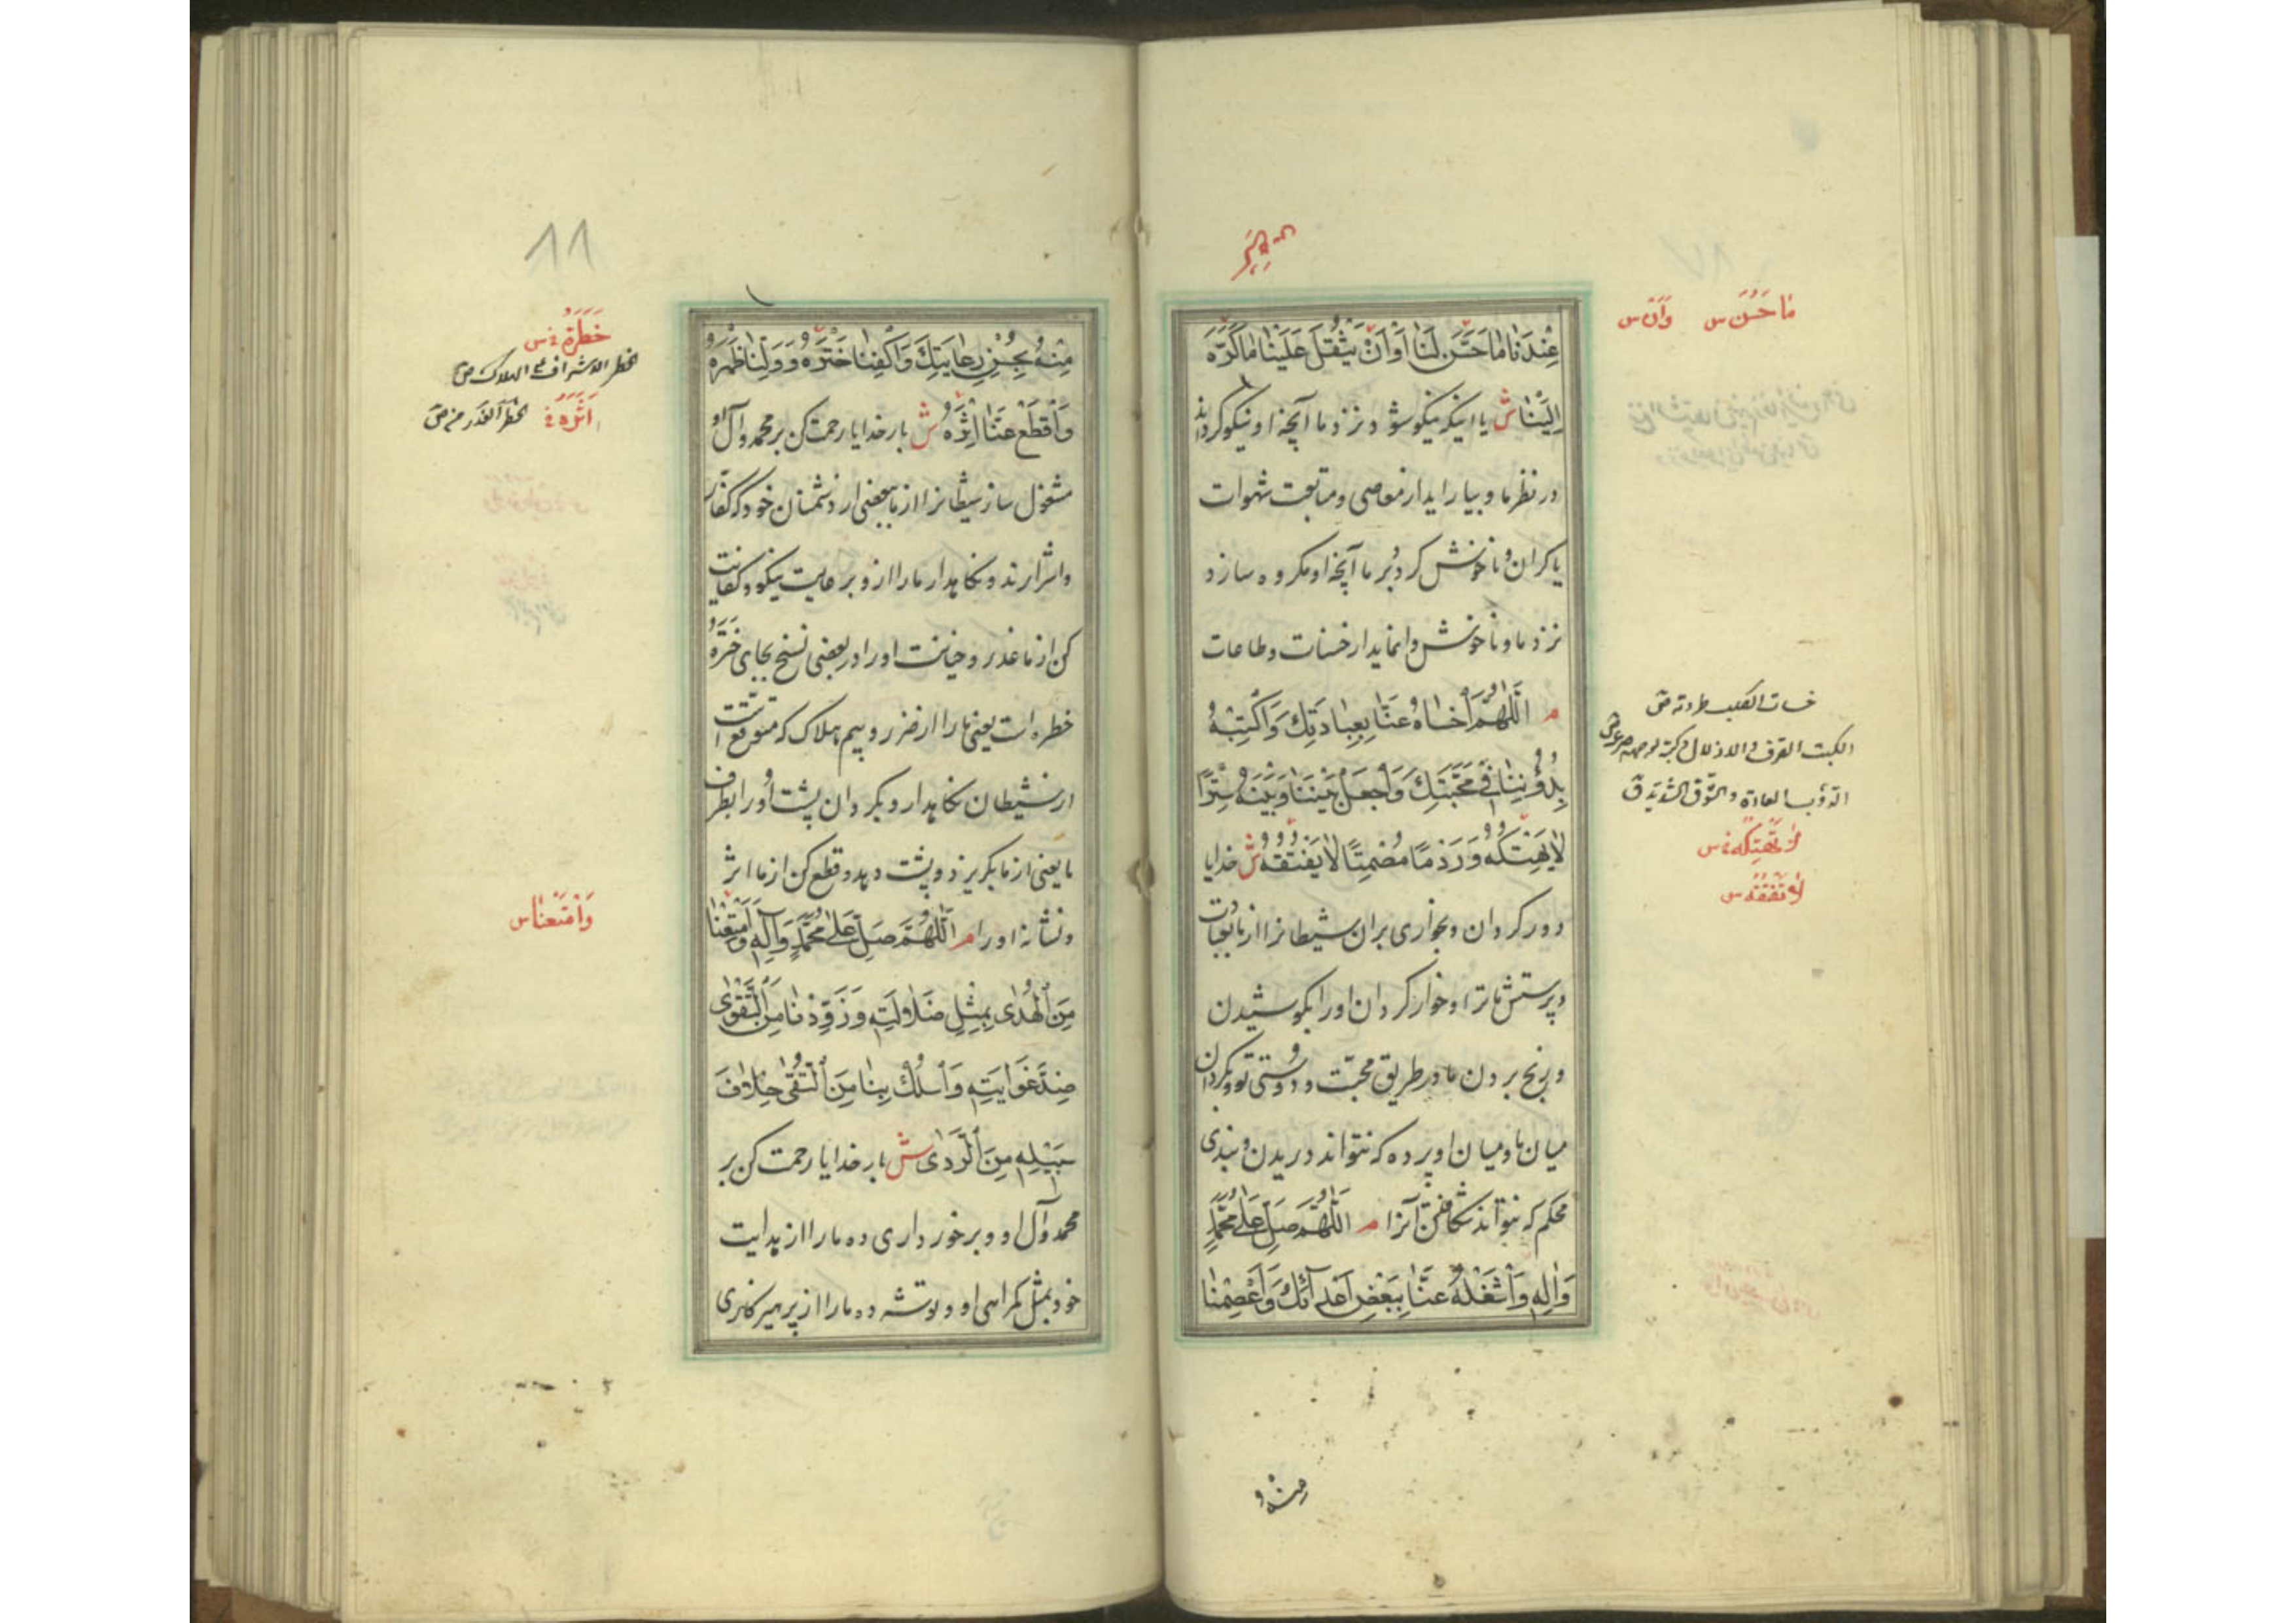 عِنْدَنَا مَا حَسَّنَ لَنَا أَوْ أَنْ يَثْقُلَ عَلَيْنَا مَا كَرَّهَ
إِلَيْنَا ش يا اينكه نيكو شود نزد ما آنچه او نيكو كرداند
در نظر ما و بيارايد از معاصى و متابعت شهوات
يا كران و ناخوش كردد بر ما آنچه او مكروه سازد
نزد ما و ناخوش وا نمايد از حسنات و طاعات
م اَللّٰهُمَّ اخْسَأْهُ عَنَّا بِعِبَادَتِكَ وَاكْبِتْهُ
بِدُؤُوبِنَا فِي مَحَبَّتِكَ وَاجْعَلْ بَيْنَنَا وَبَيْنَهُ سِتْرًا
لَا يَهْتِكُهُ وَرَدْمًا مُصْمِتًا لَا يَفْتُقُهُ ش خدايا
دور كردان و بخوارى بران شيطانرا از ما بعبادت
و پرستش ما ترا و خوار كردان او را بكوشيدن
و رنج بردن ما در طريق محبّت و دوستى تو و بكردان
ميان ما و ميان او پرده كه نتواند دريدن و بندى
محكم كه نتواند شكافتن آنرا م اَللّٰهُمَّ صَلِّ عَلَى مُحَمَّدٍ
وَآلِهِ وَاشْغَلْهُ عَنَّا بِبَعْضِ أَعْدَآئِكَ وَاعْصِمْنَا
مَا حَسُنَ س وَأَنْ س
الكبت الصرف والاذلال
لَا تَهْتِكُهُ س
لَا تَفْتُقُهُ س
منه و
٨٨
مِنْهُ بِحُسْنِ رِعَايَتِكَ وَاكْفِنَا خَتْرَهُ وَوَلِّنَا ظَهْرَهُ
وَاقْطَعْ عَنَّا إِثْرَهُ ش بار خدايا رحمت كن بر محمد و آل او
مشغول ساز شيطانرا از ما ببعضى از دشمنان خود كه كفار
و اشرارند و نكاهدار ما را ازو برعايت نيكو و كفايت
كن از ما غدر و خيانت او را در بعضى نسخ بجاى خَتْرَهُ
خطره است يعنى ما را از ضرر و بيم هلاك كه متوقع است
از شيطان نكاهدار و بكردان پشت او را بطرف
ما يعنى از ما بكريزد و پشت دهد و قطع كن از ما اثر
و نشانه او را م اَللّٰهُمَّ صَلِّ عَلَى مُحَمَّدٍ وَآلِهِ وَأَمْتِعْنَا
مِنَ الْهُدَى بِمِثْلِ ضَلَالَتِهِ وَزَوِّدْنَا مِنَ التَّقْوَى
ضِدَّ غَوَايَتِهِ وَاسْلُكْ بِنَا مِنَ التُّقَى خِلَافَ
سَبِيلِهِ مِنَ الرَّدَى ش بار خدايا رحمت كن بر
محمد و آل او و برخوردارى ده ما را از هدايت
خود بمثل كمراهى او و توشه ده ما را از پرهيزكارى
خَطَرَهُ س
الخطر الاشراف على الهلاك ص
أَثَرَهُ
وَأَمْتِعْنَا س